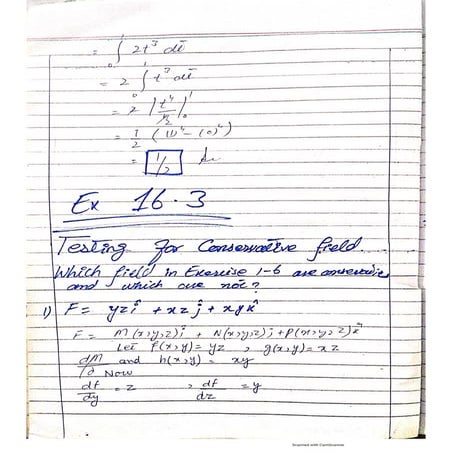 = ∫₀¹ 2t³ dt
= 2 ∫₀¹ t³ dt
= 2 | t⁴/4 |₀¹
= 1/2 ((1)⁴ - (0)⁴)
= 1/2
Ex 16.3
Testing for Conservative field.
Which field in Exercise 1-6 are conservative
and which are not?
1) F = yzî + xzĵ + xyk̂
F = M(x,y,z)î + N(x,y,z)ĵ + P(x,y,z)k̂
Let f(x,y) = yz , g(x,y) = xz
and h(x,y) = xy
Now
df/dy = z , df/dz = y
Scanned with CamScanner